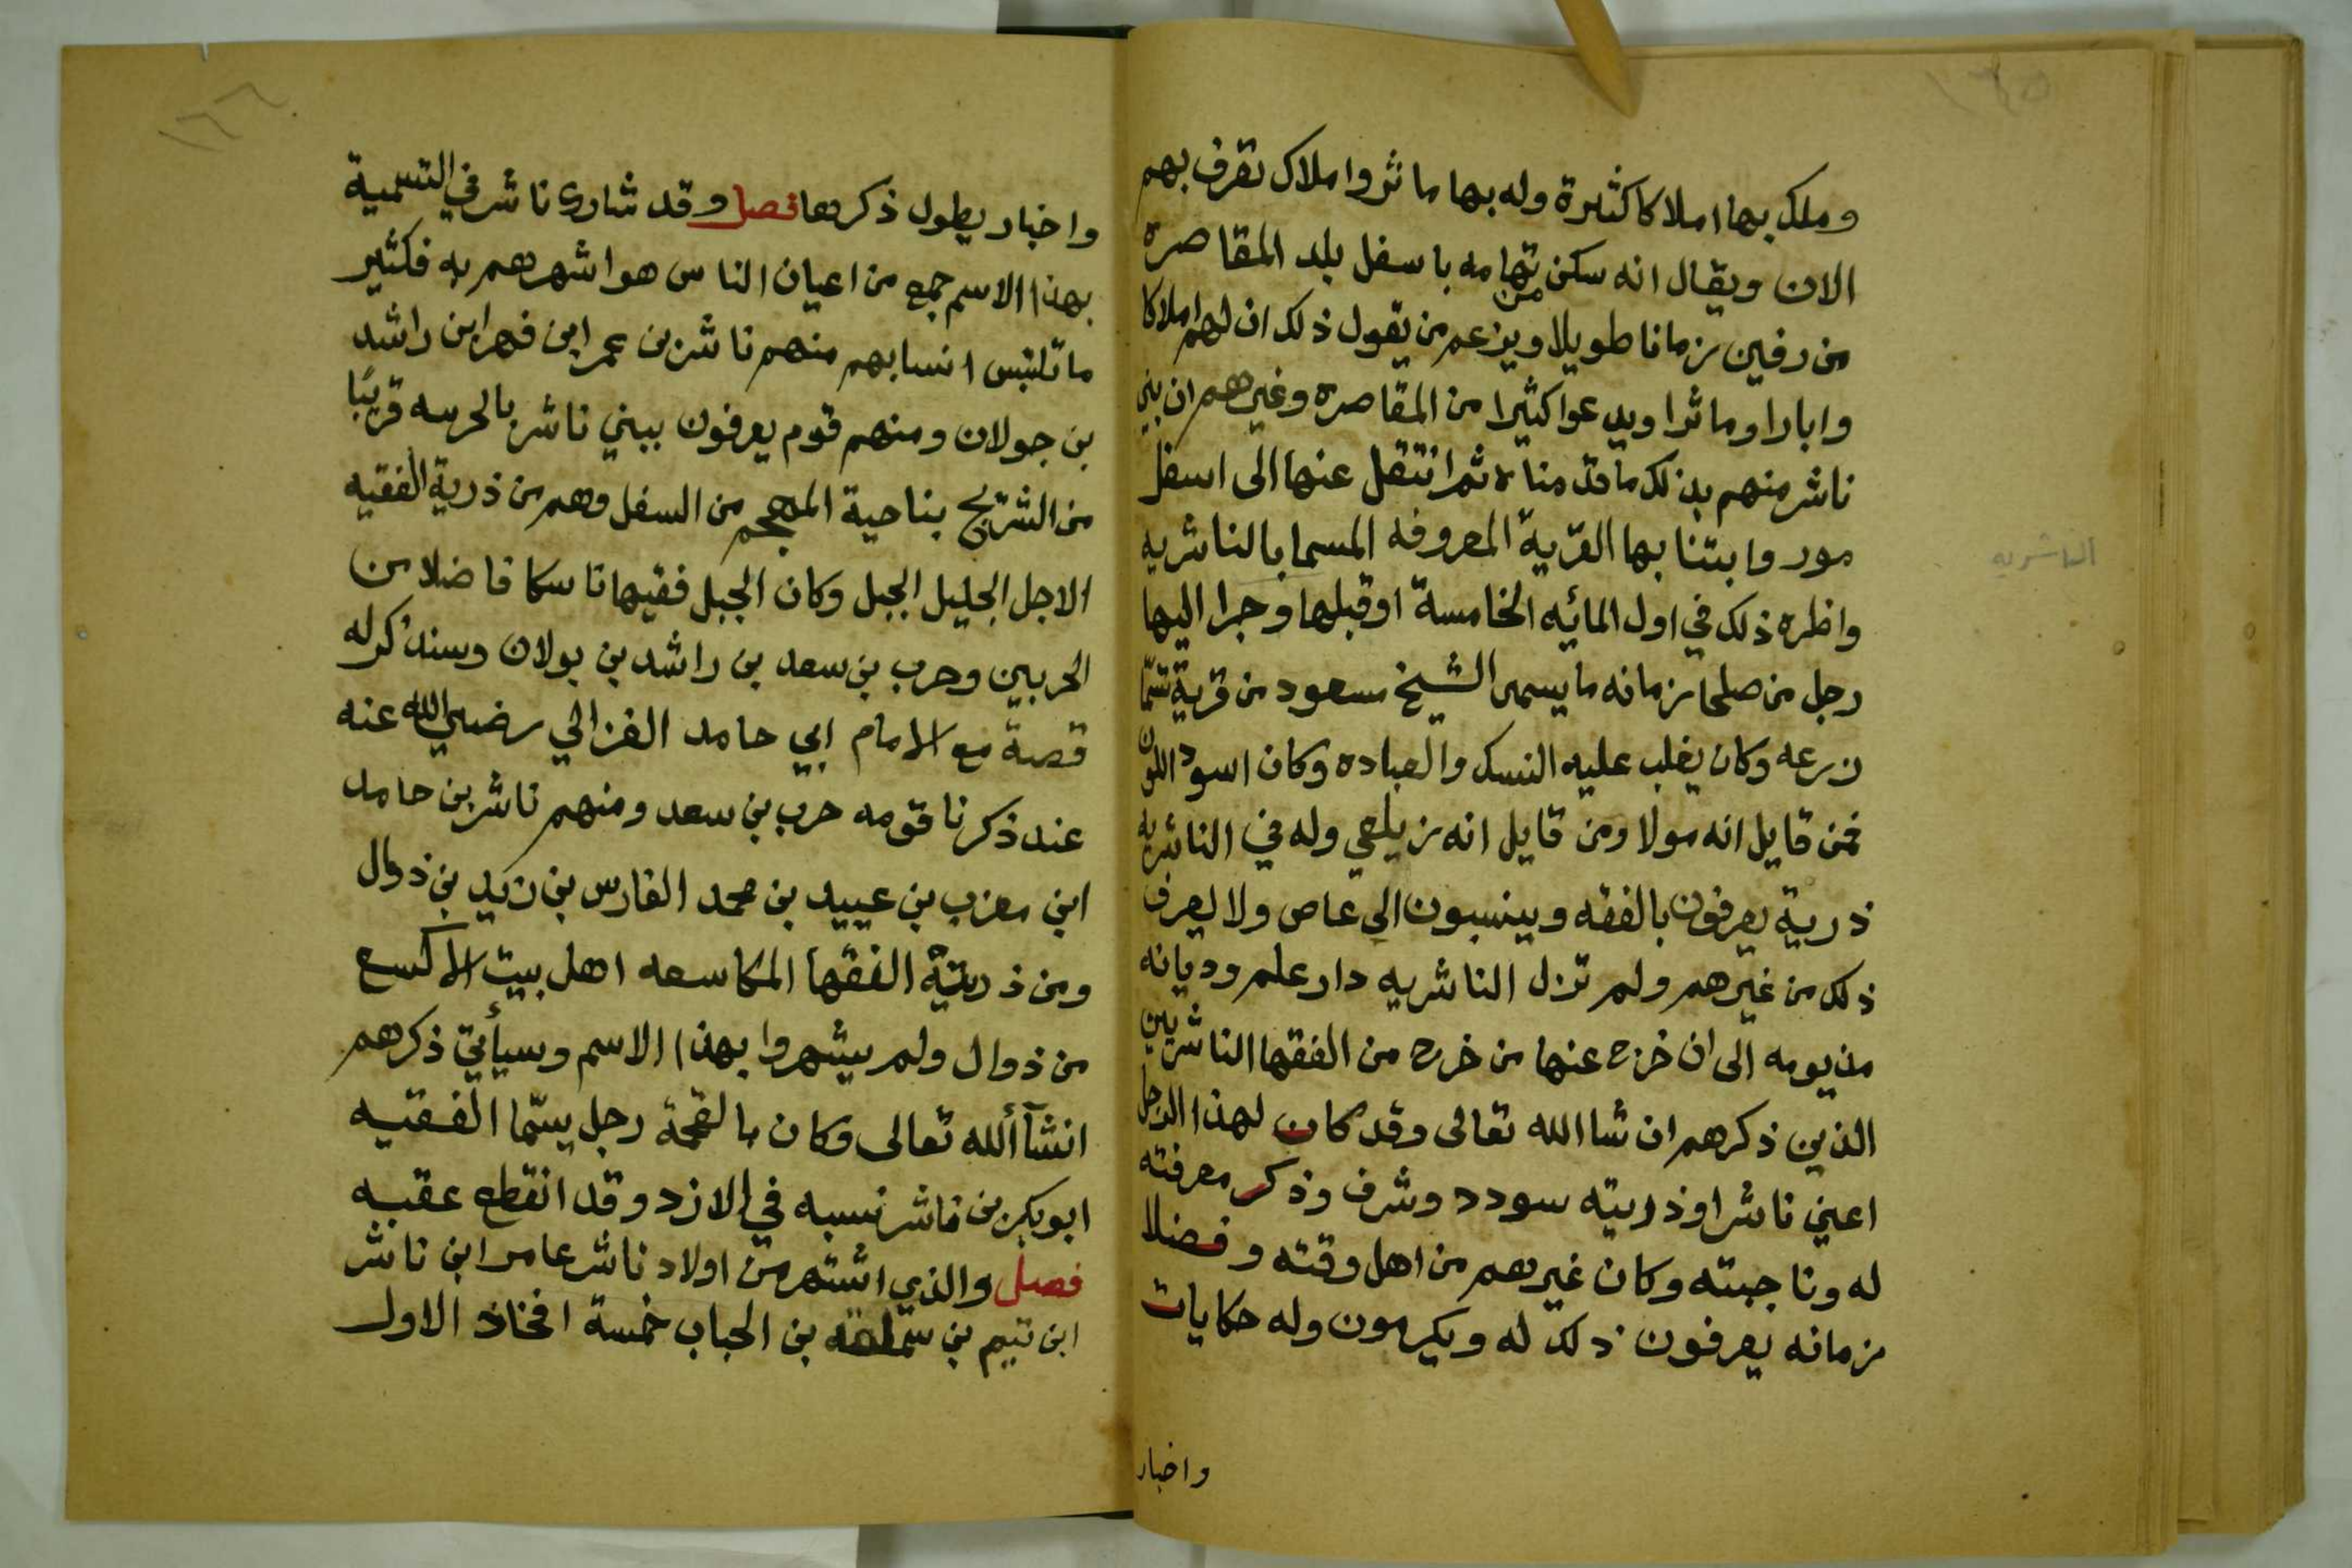 وملك بها املاكا كثيرة وله بها ماثر واملاك تعرف بهم
الان ويقال انه سكن تهامه باسفل بلد المقاصرة
من رفين زمانا طويلا ويزعم من يقول ذلك ان لهم املاكا
وابارا وماثرا ويدعوا كثيرا من المقاصره وغيرهم ان بني
ناشر منهم بذلك ما قدمناه ثم انتقل عنها الى اسفل
مور وابتنا بها القرية المعروفه المسما بالناشريه
واظره ذلك في اول المائيه الخامسة او قبلها وجرا اليها
رجل من صلحا زمانه ما يسمى الشيخ مسعود من قرية تسمّا
زرعه وكان يغلب عليه النسك والعباده وكان اسود اللون
فمن قايل انه مولا ومن قايل انه زيلعي وله في الناشريه
ذرية يعرفون بالفقه وينسبون الى عاص ولا يعرف
ذلك من غيرهم ولم تزل الناشريه دار علم وديانه
من يومه الى ان خرج عنها من خرج من الفقها الناشريين
الذين ذكرهم ان شا الله تعالى وقد كان لهذا الرجل
اعني ناشرا وذريته سودد وشرف وذكر معرفته
له وناجبته وكان غيرهم من اهل وقته وفضلا
زمانه يعرفون ذلك له ويكرمون وله حكايات
واخبار
الناشريه
١٦٥
١٦٦
واخبار يطول ذكرها فصل وقد شارك ناشر في التسمية
بهذا الاسم جمع من اعيان الناس هو اشهرهم به فكثير
ما تلتبس انسابهم منهم ناشر بن عمر ابن فهر ابن راشد
بن جولان ومنهم قوم يعرفون ببني ناشر بالحرسه قريبًا
من الشريج بناحية المهجم من السفل وهم من ذرية الفقيه
الاجل الجليل الجبل وكان الجبل فقيها ناسكا فاضلا من
الحربيين وحرب بن سعد بن راشد بن بولان وسنذكر له
قصة مع الامام ابي حامد الغزالي رضي الله عنه
عند ذكرنا قومه حرب بن سعد ومنهم ناشر بن حامد
ابن معزب بن عبيد بن محمد الفارس بن زيد بن ذوال
ومن ذريتة الفقها المكاسعه اهل بيت الاكسع
من ذوال ولم يشهروا بهذا الاسم وسيأتي ذكرهم
انشآ ألله تعالى وكان بالقحمة رجل يسمّا الفقيه
ابو بكر بن ناشر نسبه في الازد وقد انقطع عقبه
فصل والذي اشتهر من اولاد ناشر عامر ابن ناشر
ابن تيم بن سملقه بن الحباب خمسة افخاذ الاول